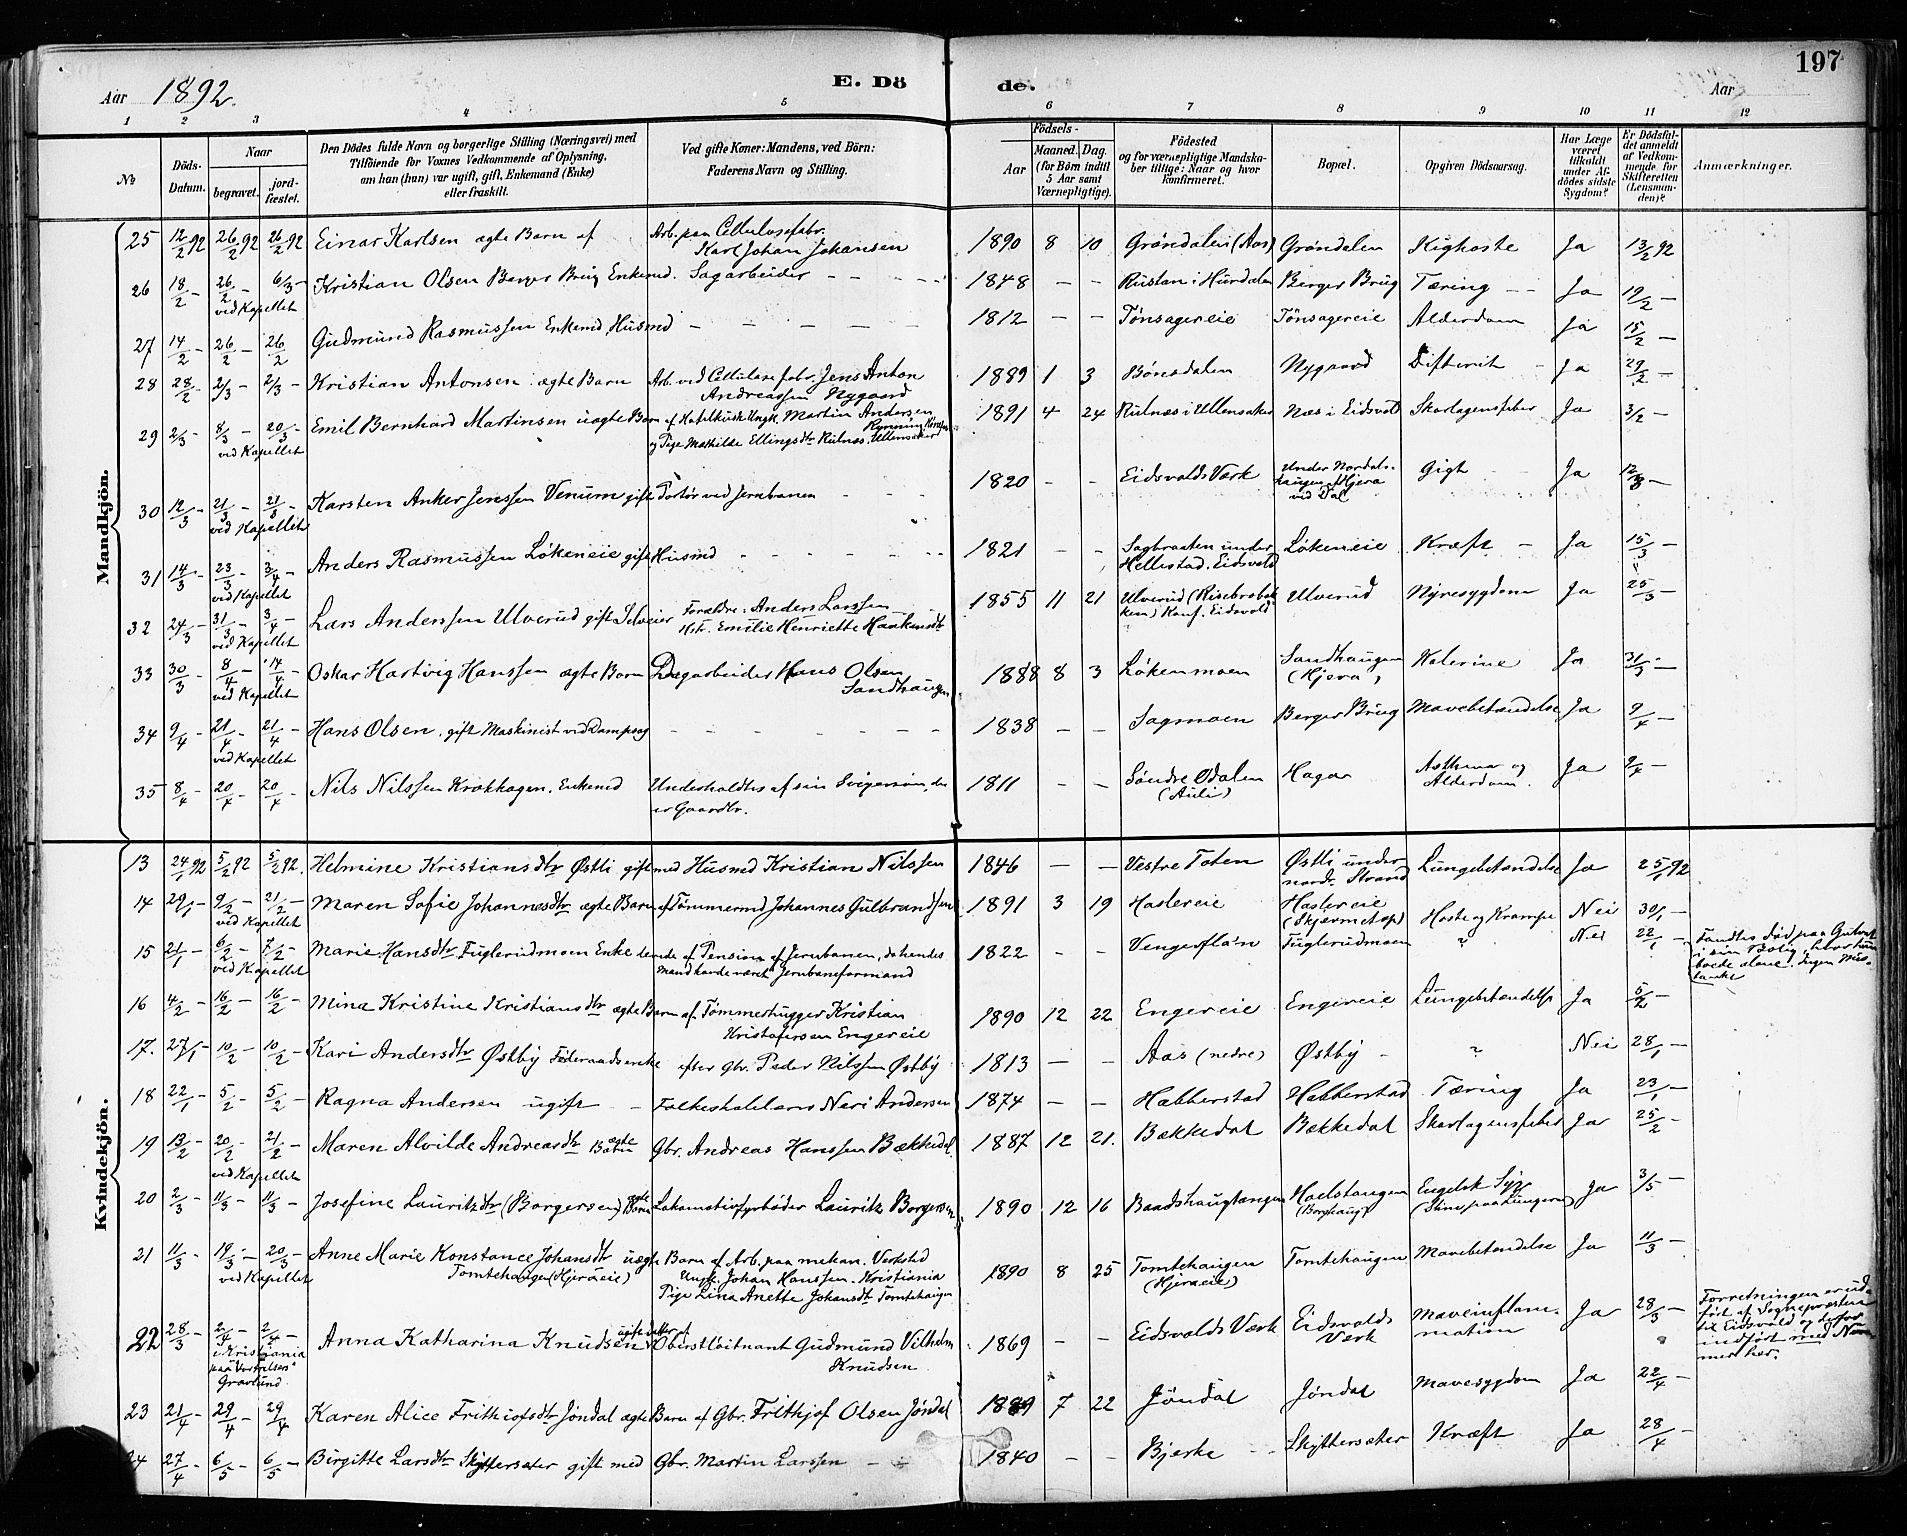 197
Aar 1892. E. Dö de. Aar
1 2 3 4 5 6 7 8 9 10 11 12
No
Döds-Datum.
Naar
begravet.
jord-fæstet.
Den Dödes fulde Navn og borgerlige Stilling (Næringsvei) med
Tilföiende for Voxnes Vedkommende af Oplysning,
om han (hun) var ugift, gift, Enkemand (Enke)
eller fraskilt.
Ved gifte Koner: Mandens, ved Börn:
Faderens Navn og Stilling.
Födsels-
Aar
Maaned. Dag.
(for Börn indtil
5 Aar samt
Værnepligtige).
Födested
og for værnepligtige Mandska-
ber tillige: Naar og hvor
konfirmeret.
Bopæl.
Opgiven Dödsaarsag.
Har Læge
været
tilkaldt
under Af-
dödes sidste
Sygdom?
Er Dödsfal-
det anmeldt
af Vedkom-
mende for
Skifteretten
(Lensman-
den)?
Anmærkninger.
Mandkjön.
25 12/2 92 26/2 92 26/2 92 Einar Karlsen ægte Barn af Arb. paa Cellulosefabr. Karl Johan Johansen 1890 8 10 Grøndalen (Aas) Grøndalen Kighoste Ja 13/2 92
26 18/2 – 26/2 – 6/3 – ved Kapellet Kristian Olsen Berger Brug Enkemd. Sagarbeider – – 1848 – – Rustan i Hurdalen Berger Brug Tæring – – Ja 19/2 –
27 14/2 – 26/2 – 26/2 Gudmund Rasmussen Enkemd, Husmd – – – – – 1812 – – Tønsagereie Tönsagereie Alderdom Ja 15/2 –
28 28/2 – 2/3 – 2/3 – Kristian Antonsen ægte Barn Arb. ved Cellulosefabr. Jens Anton Andreassen Nygaard 1889 1 3 Bönsdalen Nygaard Difterit – Ja 29/2 –
29 2/3 – 8/3 – 20/3 – ved Kapellet Emil Bernhard Martinsen uægte Barn af Ungk. Martin Andersen og Pige Mathilde Ellingsdtr Rulnæs. Ullensaker 1891 4 24 Rulnæs i Ullensaker Næs i Eidsvold Skarlagensfeber Ja 3/2 –
30 12/3 – 21/3 – 21/3 – ved Kapellet Karsten Anker Jenssen Venum gift Portör ved Jernbanen – – 1820 – – Eidsvolds Værk Under Nordals-haugen Hjera ved Dal Gigt – Ja 12/3 –
31 14/3 – 23/3 – 3/4 – ved Kapellet Anders Rasmussen Løkeneie gift Husmd – – – – – 1821 – – Sagbraaten under Hellestad. Eidsvold Løkeneie Kræft – Ja 15/3 –
32 24/3 – 31/3 – 3/4 – ved Kapellet Lars Anderssen Ulverud gift Selveier Forældre: Anders Larssen – Hstr. Emilie Henriette Haakensdtr 1855 11 21 Ulverud (Risebrobakken) Konf. Eidsvold Ulverud Nyresygdom Ja 25/3 –
33 30/3 – 8/4 – 14/4 – ved Kapellet Oskar Hartvig Hanssen ægte Barn Dagarbeider Hans Olsen Sandhaugen 1888 8 3 Løkenmoen Sandhaugen (Hjera) Ja 31/3 –
34 9/4 – 21/4 – 21/4 – ved Kapellet Hans Olsen. gift Maskinist ved Dampsag – – – – – – 1838 – – Sagmoen Berger Brug Mavebetændelse Ja 9/4 –
35 8/4 – 20/4 – 20/4 – Nils Nilssen Krokhagen. Enkemd Underholdtes af sin Svigersøn, der er Gaardbr. 1811 – – Søndre Odalen (Auli) Hagan Asthma og Alderdom. Ja 9/4 –
Kvindekjön.
13 24/1 92 5/2 92 5/2 92. Helmine Kristiansdtr Østli gift med Husmd Kristian Nilssen 1846 – – Vestre Toten Østli under nordr. Strand Lungebetændelse Ja 25/1 92
14 29/1 – 9/2 – 21/2 – ved Kapellet Maren Sofie Johannesdtr ægte Barn af Tømmermd Johannes Gulbrandsen 1891 3 19 Haslereie Haslereie Hoste og Krampe Nei 30/1 –
15 21/1 – 6/2 – 7/2 – ved Kapellet Marie Hansdtr Fuglerudmoen Enke levede af Pension af Jernbanen, da hendes Mand havde været Jernbaneformand 1822 – – Vengerflø'n Fuglerudmoen " Nei 22/1 – Fandtes død paa Gulvet i sin Bolig, hvor hun boede alene. Ingen Mis-tanke
16 4/2 – 16/2 – 16/2 – Mina Kristine Kristiansdtr ægte Barn af Tömmerhugger Kristian Kristofersen Engereie 1890 12 22 Engereie Engereie Lungebetændelse Ja 5/2 –
17. 27/1 – 10/2 – 10/2 – Kari Andersdtr Østby Føderaadsenke efter Gbr. Peder Nilssen Østby 1813 – – Aas (nedre) Østby – " Nei 28/1 –
18 22/1 – 5/2 – 5/2 – Ragna Andersen ugift – Folkeskolelærer Neri Andersen 1874 – – Habberstad Habberstad Tæring Ja 23/1 –
19 13/2 – 20/2 – 21/2 – ved Kapellet Maren Alvilde Andreasdtr ægte Barn Gbr. Andreas Hanssen Bækkedal 1887 12 21. Bækkedal Bækkedal Skarlagensfeber Ja 25/2 –
20 2/3 – 11/3 – 11/3 – Josefine Lauritzdtr (Borgersen) ægte Barn Lokomotivfyrbøder Lauritz Borgersen 1890 12 16 Baadshaugtangen Haelstangen (Borghaug) Engelsk Syge (Slim paa Lungerne) Ja 3/5 –
21 11/3 – 19/3 – 20/3 – ved Kapellet Anne Marie Konstance Johansdtr uægte Tomtehaugen (Hjeraeie) Barn af Arb. paa mekan. Verksted Ungk. Johan Hanssen. Kristiania Pige Lina Anette Johansdtr Tomtehaugen 1890 8 25 Tomtehaugen (Hjeraeie) Tomtehaugen Mavebetændelse Ja 11/3 –
22 28/3 – 2/4 – 2/4 – i Kristiania paa Vor Frelsers Gravlund Anna Katharina Knudsen ugift datter af Oberstløitnant Gudmund Vilhelm Knudsen 1869 – – Eidsvolds Værk Eidsvolds Værk Maveinflam-mation Ja 28/3 – Forretningen er ud-ført af Sognepresten til Eidsvold og derfor indført med Num-mer her.
23 21/4 – 29/4 – 29/4 Karen Alice Frithiofsdtr Jøndal ægte Barn af Gbr. Frithjof Olsen Jøndal 1889 7 22 Jøndal Jøndal Mavesygdom Ja 22/4 –
24 27/4 – 6/5 – 6/5 – Birgitte Larsdtr Skyttersæter gift med Gbr. Martin Larssen – – 1840 – – Bjerke – – Skyttersæter Kræft Ja 28/4 –